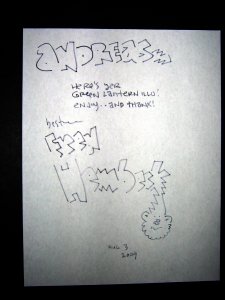 ANDREAS
HERE'S YER
GREEN LANTERN ILLO!
ENJOY...AND THANX!
best
FRED
Hembeck
3
2009